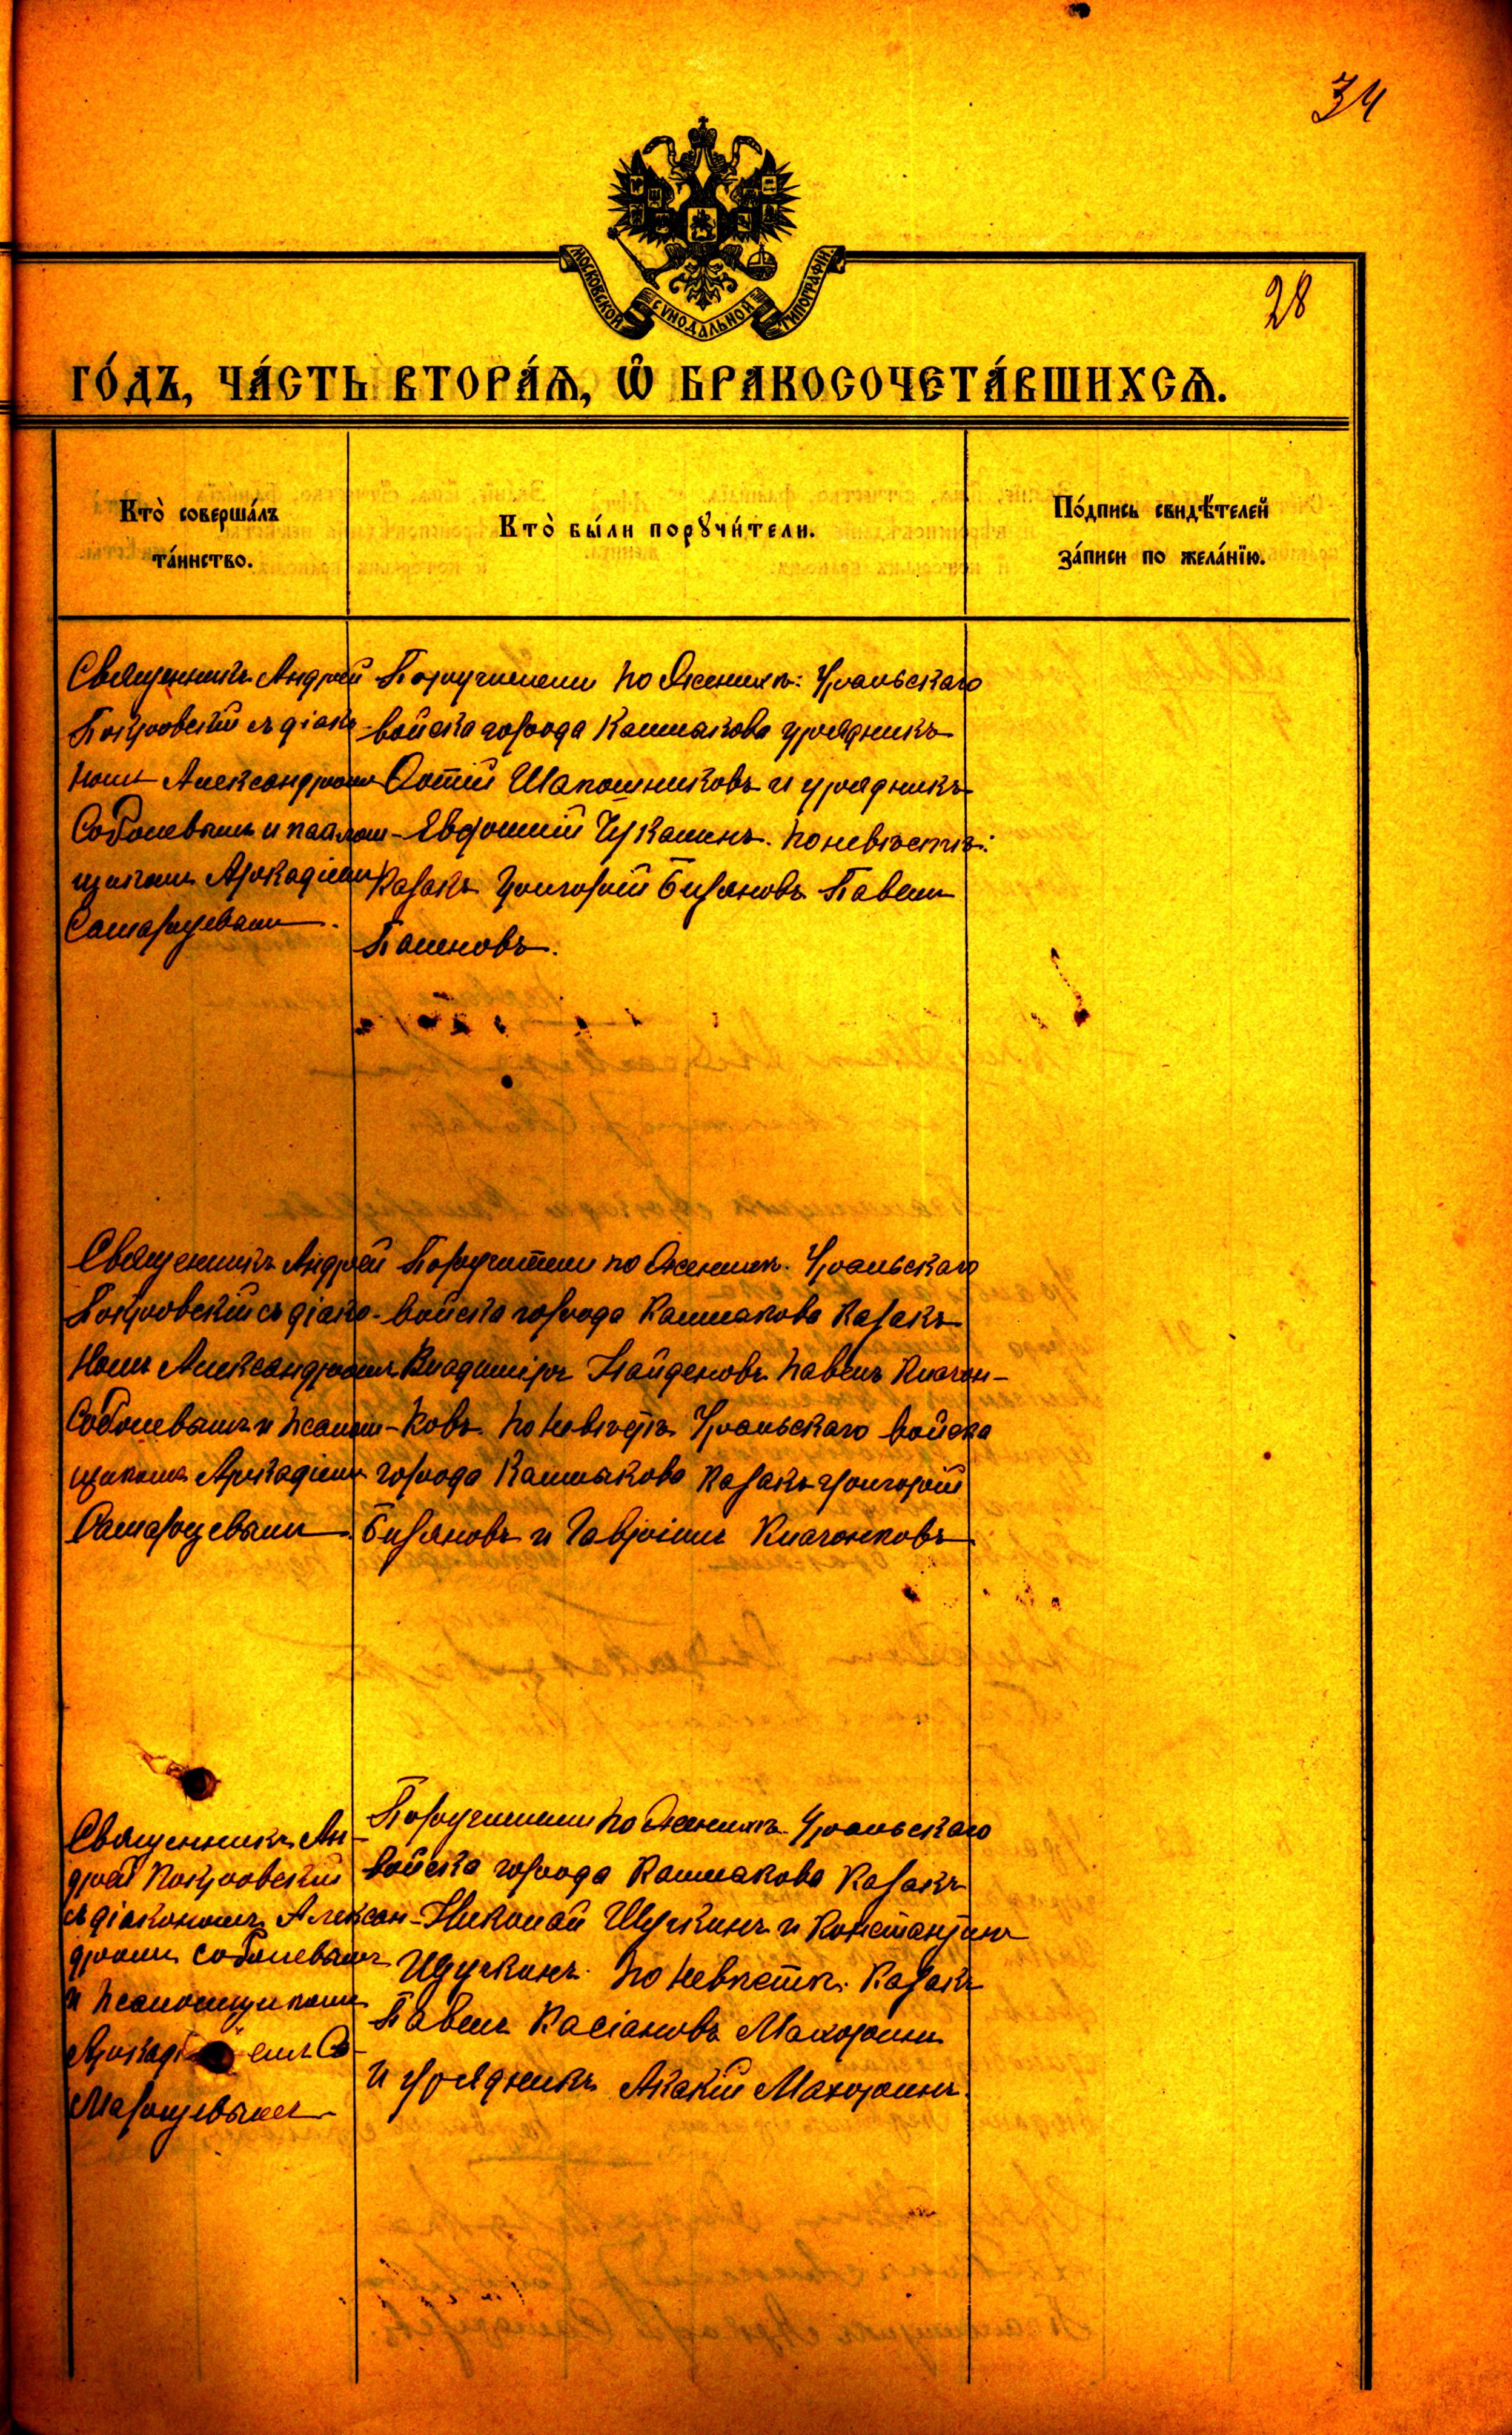 34
МОСКОВСКОЙ СѴНОДАЛЬНОЙ ТИПОГРАФІИ.
28
ГО́ДЪ, ЧА́СТЬ ВТОРА́Ѧ, Ѽ БРАКОСОЧЕТА́ВШИХСѦ.
Кто̀ соверша́лъ
та́инство.
Кто̀ бы́ли порꙋчи́тели.
По́дпись свидѣ́телей
за́писи по жела́нїю.
Священникъ Андрей
Покровскій съ діако-
номъ Александромъ
Соболевымъ и псаломъ-
щикомъ Аркадіемъ
Самарцевымъ.
Поручители по женихѣ: Уральскаго
войска города Калмыкова урядникъ
Фотій Шапошниковъ и урядникъ
Евфимій Чукалинъ. по невѣстѣ:
Казакъ Григорій Бирановъ Павелъ
Пашновъ.
Священникъ Андрей
Покровскій съ діако-
номъ Александромъ
Соболевымъ и псалом-
щикомъ Аркадіемъ
Самарцевымъ.
Поручители по женихѣ. Уральскаго
войска города Калмыкова казакъ
Владиміръ Найденовъ Павелъ Клочон-
ковъ. по невѣстѣ Уральскаго войска
города Калмыкова казакъ Григорій
Бирановъ и Гавріилъ Клочонковъ.
Священникъ Ан-
дрей Покровскій
съ діакономъ Алексан-
дромъ Соболевымъ
и псаломщикомъ
Аркад емъ Са-
марцевымъ
Поручители по женихѣ. Уральскаго
войска города Калмыкова казакъ
Николай Щучкинъ и Константинъ
Щучкинъ. по невѣстѣ. казакъ
Павелъ Касіановъ Махоринъ
и урядникъ Акакій Махоринъ.